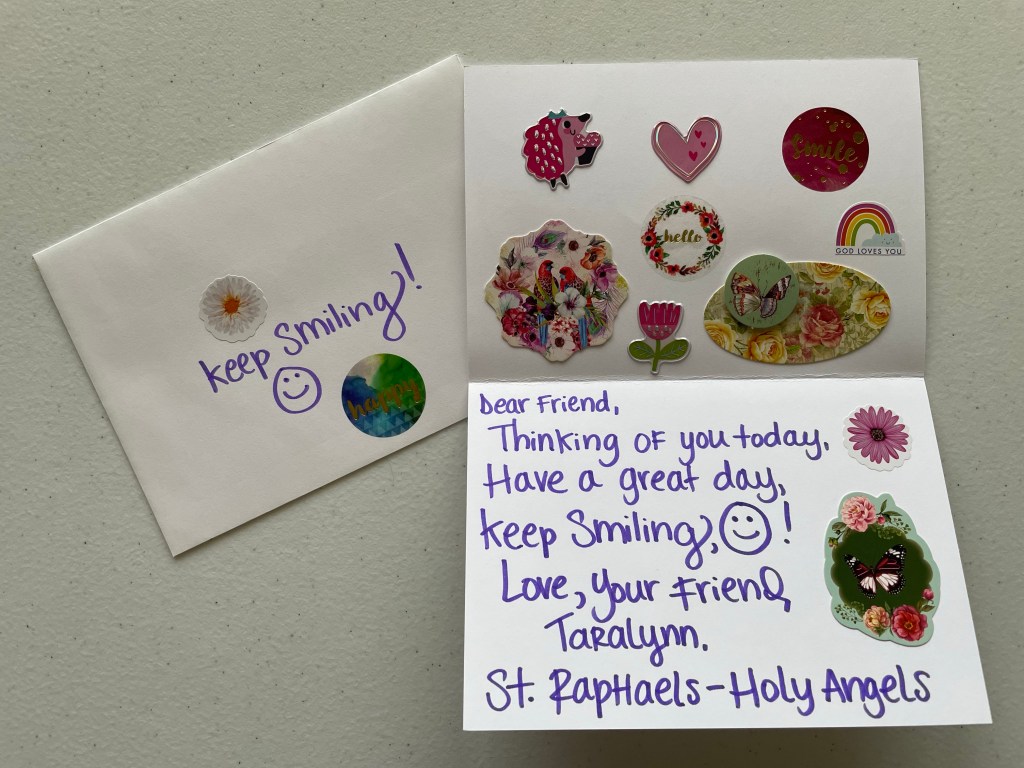 keep Smiling!
happy
smile
hello
GOD LOVES YOU
Dear Friend,
Thinking of you today.
Have a great day,
keep Smiling, !
Love, your Friend,
Taralynn.
St. Raphaels - Holy Angels